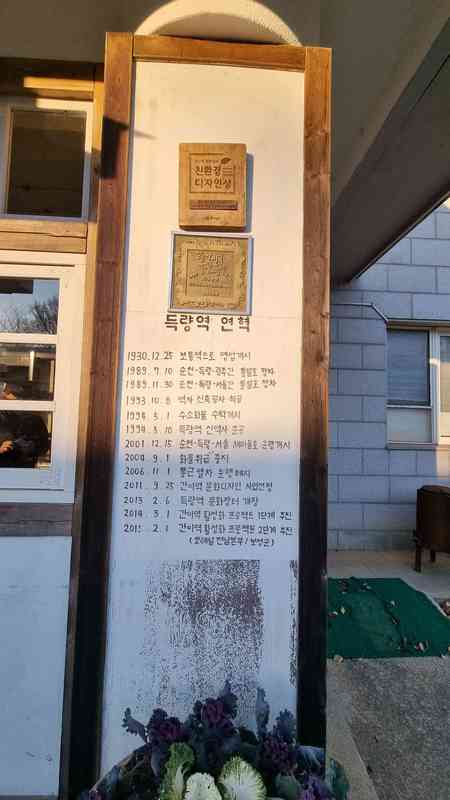 친환경
디자인상
득량역 연혁
1930. 12. 25 보통역으로 영업개시
1989. 9. 10 순천-득량-광주간 통일호 정차
1989. 11. 30 순천-득량-서울간 통일호 정차
1993. 10. 8 역사 신축공사 착공
1994. 3. 1 수소화물 수탁개시
1994. 3. 10 득량역 신역사 준공
2001. 12. 15 순천-득량-서울 새마을호 운행개시
2004. 9. 1 화물취급 중지
2006. 11. 1 통근열차 운행폐지
2011. 9. 23 간이역 문화디자인 사업선정
2013. 2. 6 득량역 문화장터 개장
2014. 3. 1 간이역 활성화 프로젝트 1단계 추진
2015. 2. 1 간이역 활성화 프로젝트 2단계 추진
(코레일 전남본부/보성군)